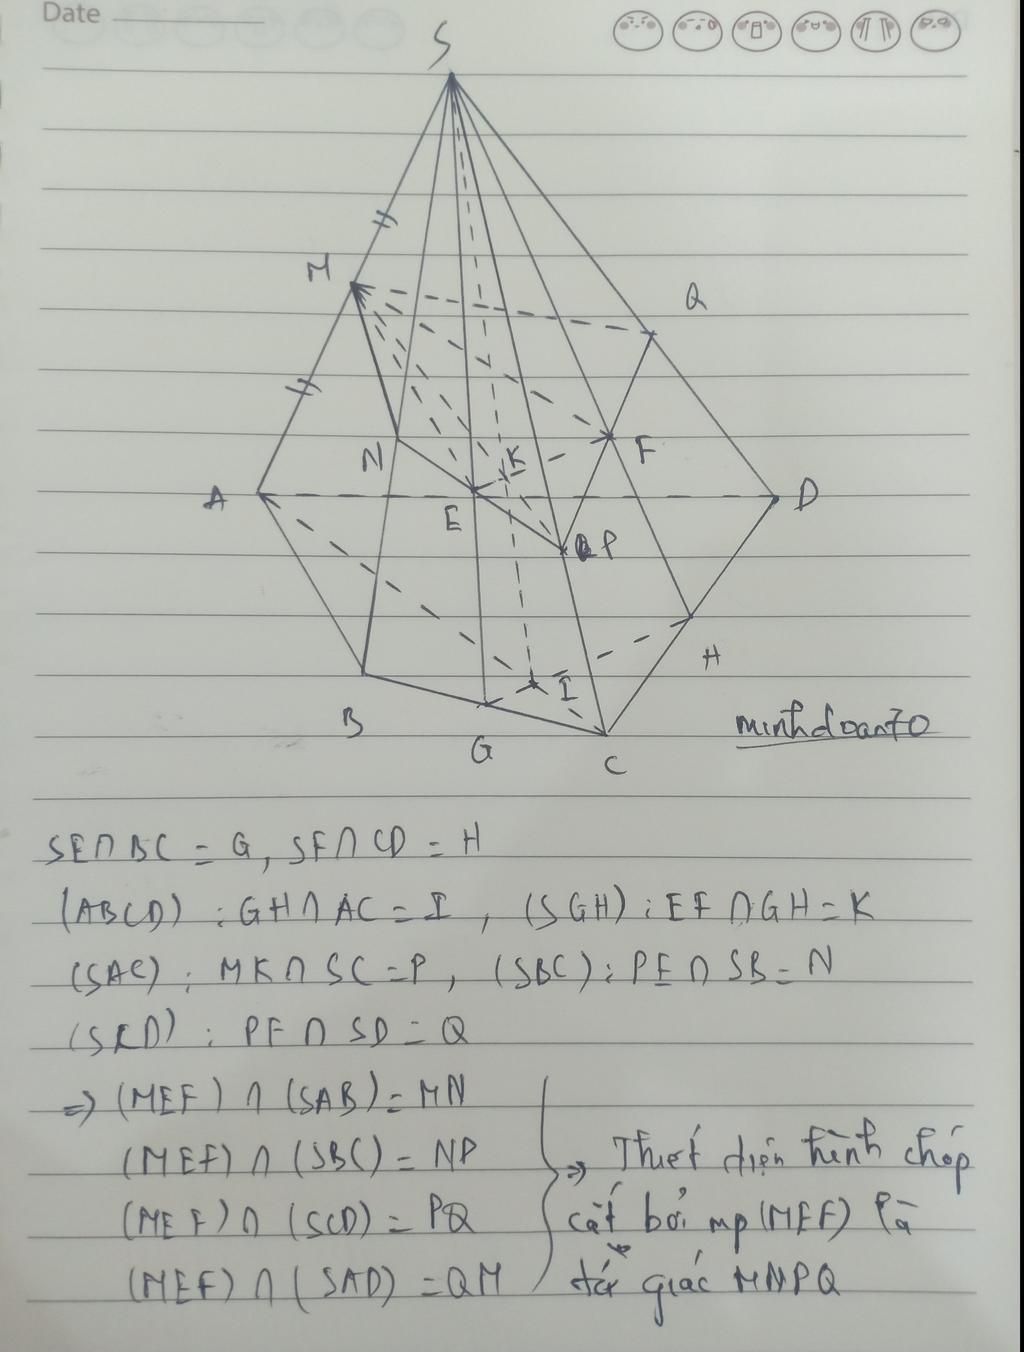 Date
S
M
Q
N
K
F
A
E
D
P
H
I
B
G
C
minhdoan70
SE∩BC = G, SF∩CD = H
(ABCD) : GH∩AC = I , (SGH) : EF∩GH = K
(SAC) : MK∩SC = P , (SBC) : PE∩SB = N
(SCD) : PF∩SD = Q
=> (MEF)∩(SAB) = MN
(MEF)∩(SBC) = NP
(MEF)∩(SCD) = PQ
(MEF)∩(SAD) = QM
=> Thiết diện hình chóp
cắt bởi mp (MEF) là
tứ giác MNPQ